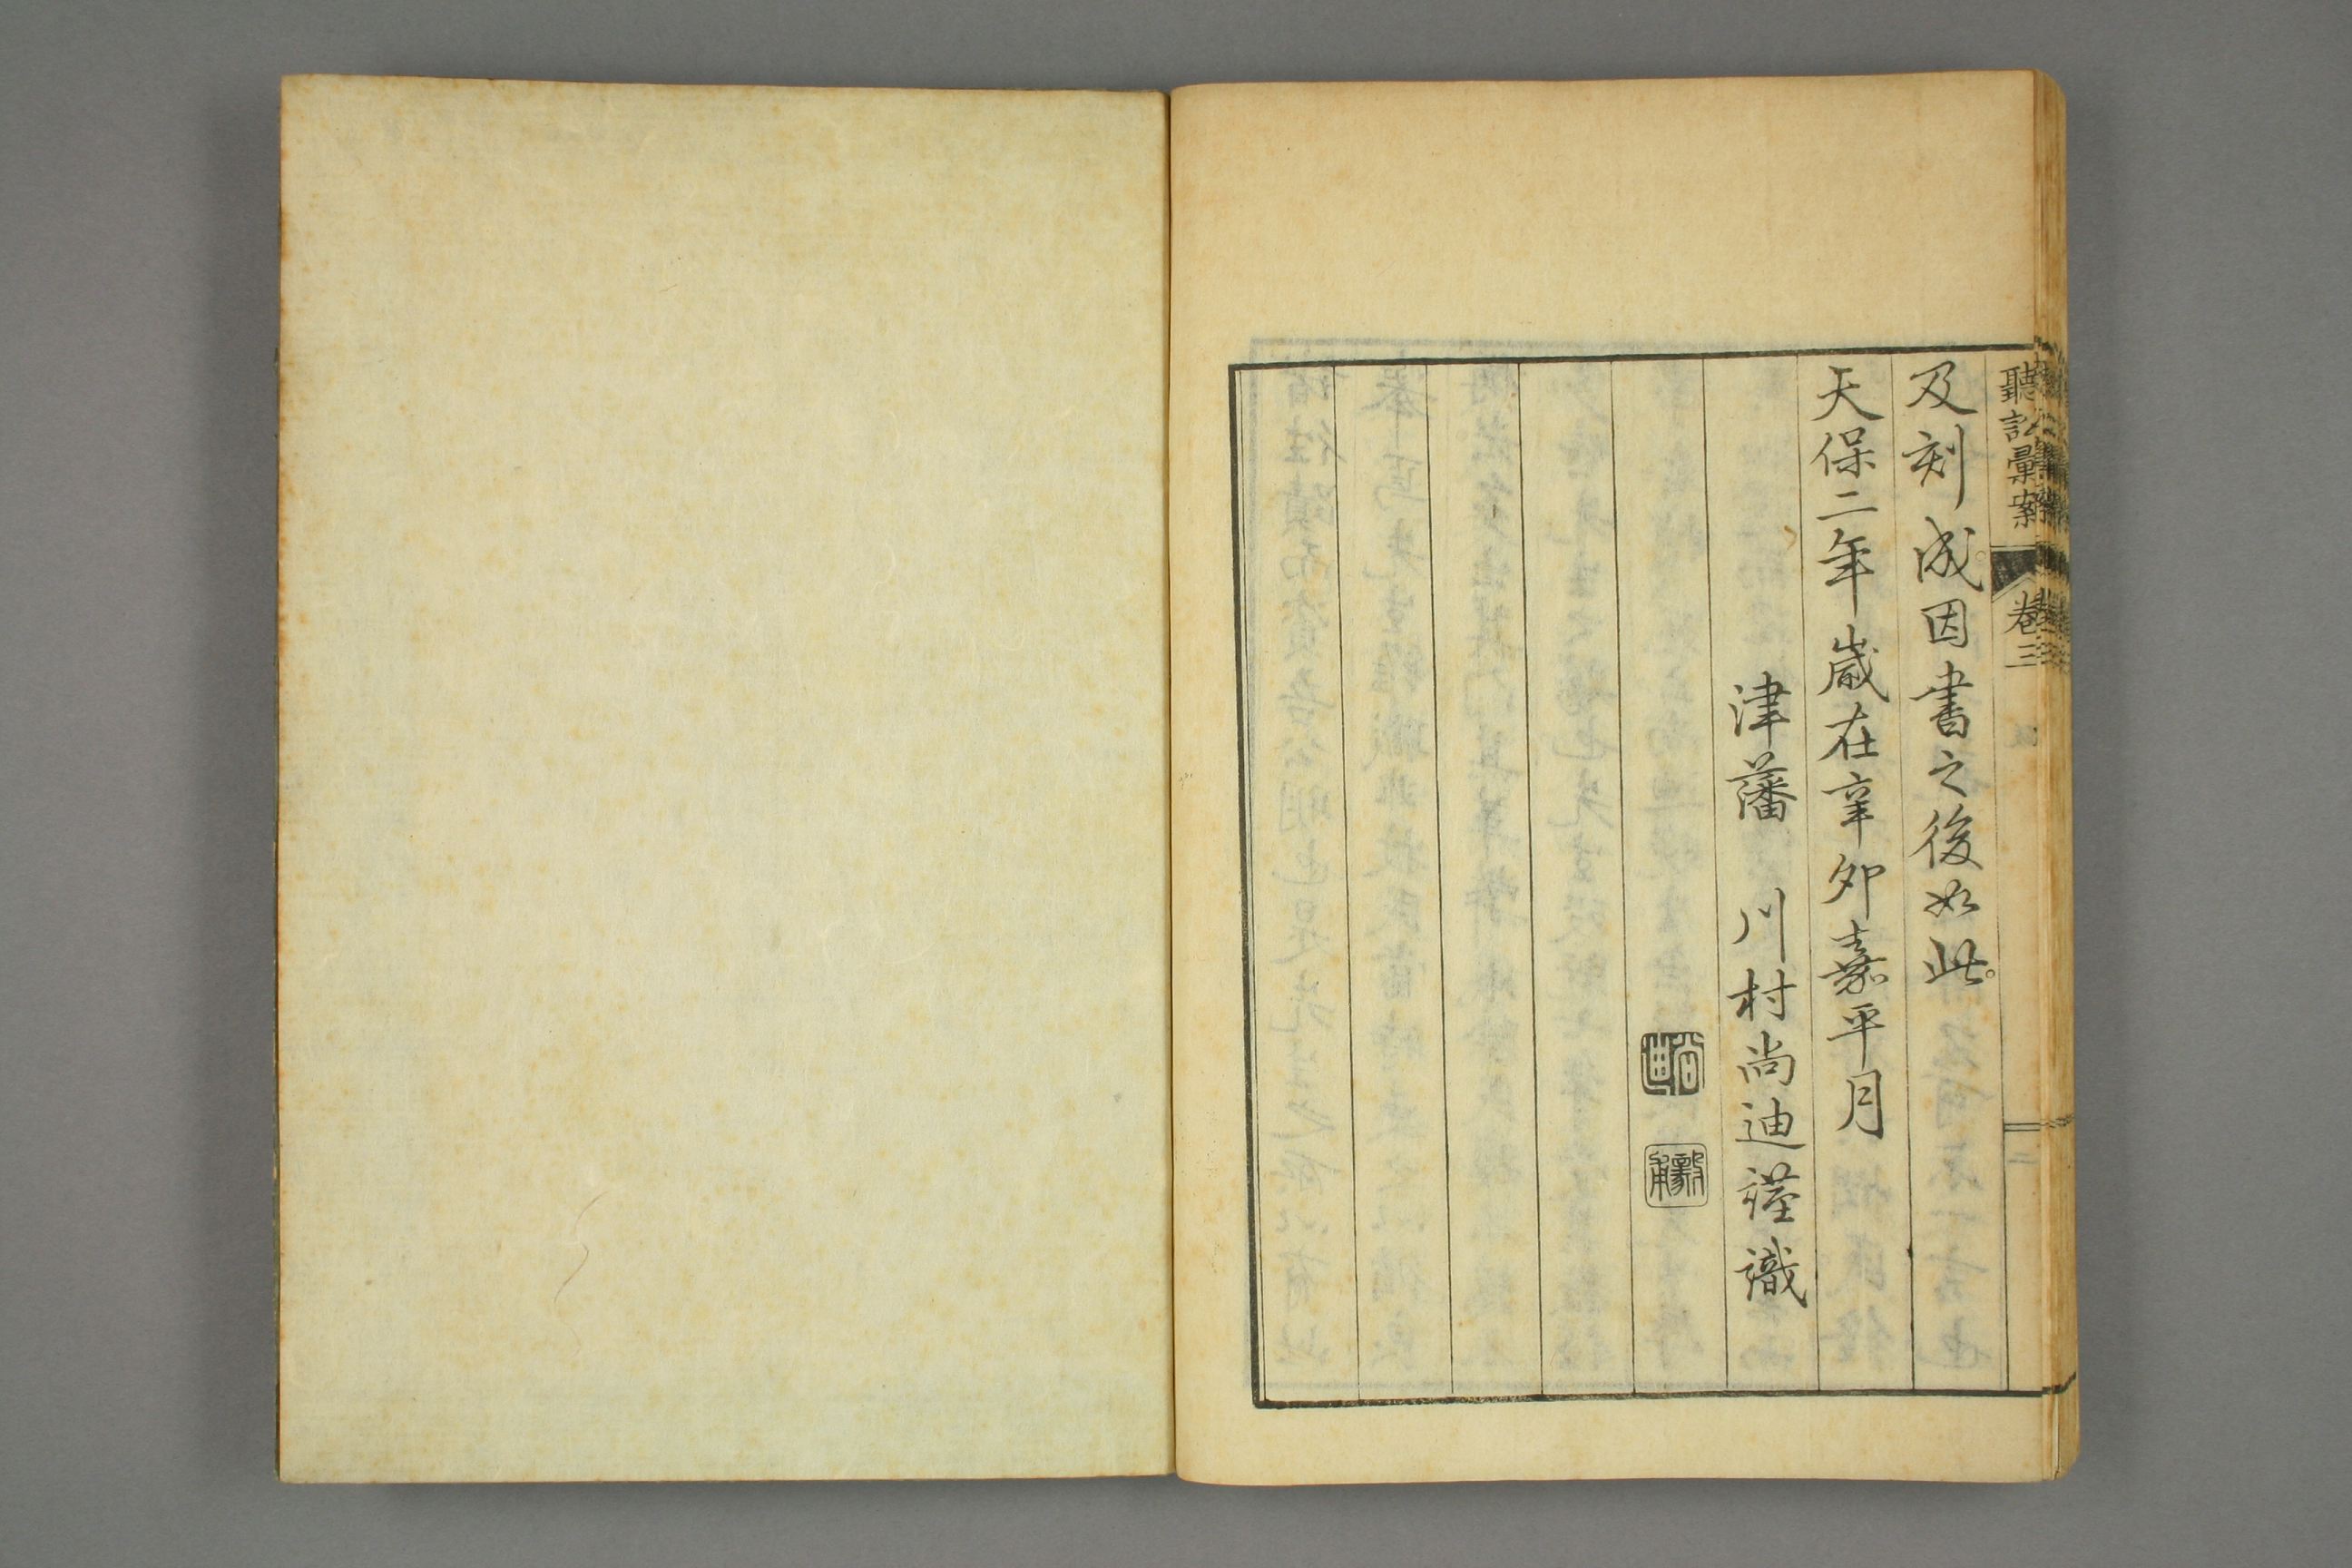 聽訟彙案
卷三
及刻成因書之後如此。
天保二年歲在辛卯嘉平月
津藩 川村尚迪謹識
尚迪
毅甫